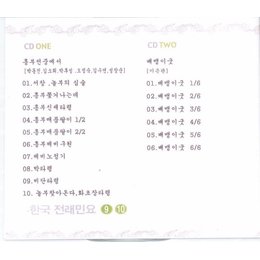 CD ONE
흥부전중에서
[박동진,김소희,박후성,오정숙,김수연,성창순]
01.서창,놀부의 심술
02.흥부쫓겨나는데
03.흥부신세타령
04.흥부매품팔이 1/2
05.흥부매품팔이 2/2
06.흥부제비구원
07.제비노정기
08.박타령
09.비단타령
10.놀부찾아온다,화초장타령
CD TWO
배뱅이굿
[이은관]
01.배뱅이굿 1/6
02.배뱅이굿 2/6
03.배뱅이굿 3/6
04.배뱅이굿 4/6
05.배뱅이굿 5/6
06.배뱅이굿 6/6
한국 전래민요 9 10